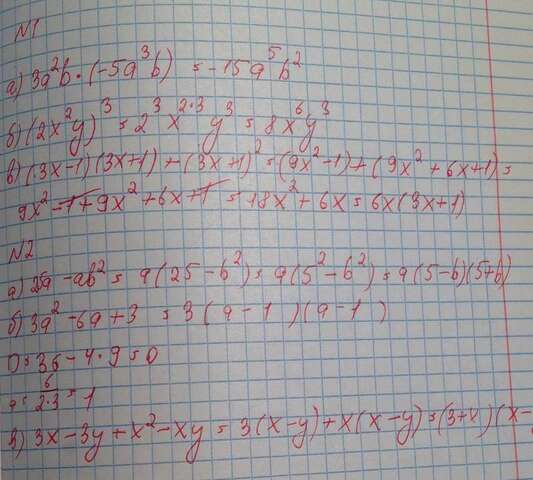 N1
а) 3a²b · (-5a³b) = -15a⁵b²
б) (2x²y)³ = 2³x²·³y³ = 8x⁶y³
в) (3x-1)(3x+1) + (3x+1)² = (9x²-1) + (9x² + 6x+1) =
9x² - 1 + 9x² + 6x + 1 = 18x² + 6x = 6x(3x+1)
N2
а) 25a - ab² = a(25 - b²) = a(5² - b²) = a(5-b)(5+b)
б) 3a² - 6a + 3 = 3(a-1)(a-1)
D = 36 - 4·9 = 0
a = 6/2·3 = 1
в) 3x - 3y + x² - xy = 3(x-y) + x(x-y) = (3+x)(x-